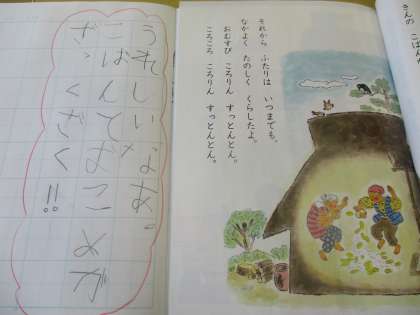 さんの こばん
それから ふたりは いつまでも、
なかよく たのしく くらしたよ。
おむすび ころりん すっとんとん。
ころころ ころりん すっとんとん。
うれしいなあ。
こばんでおこめが
ざくざく!!